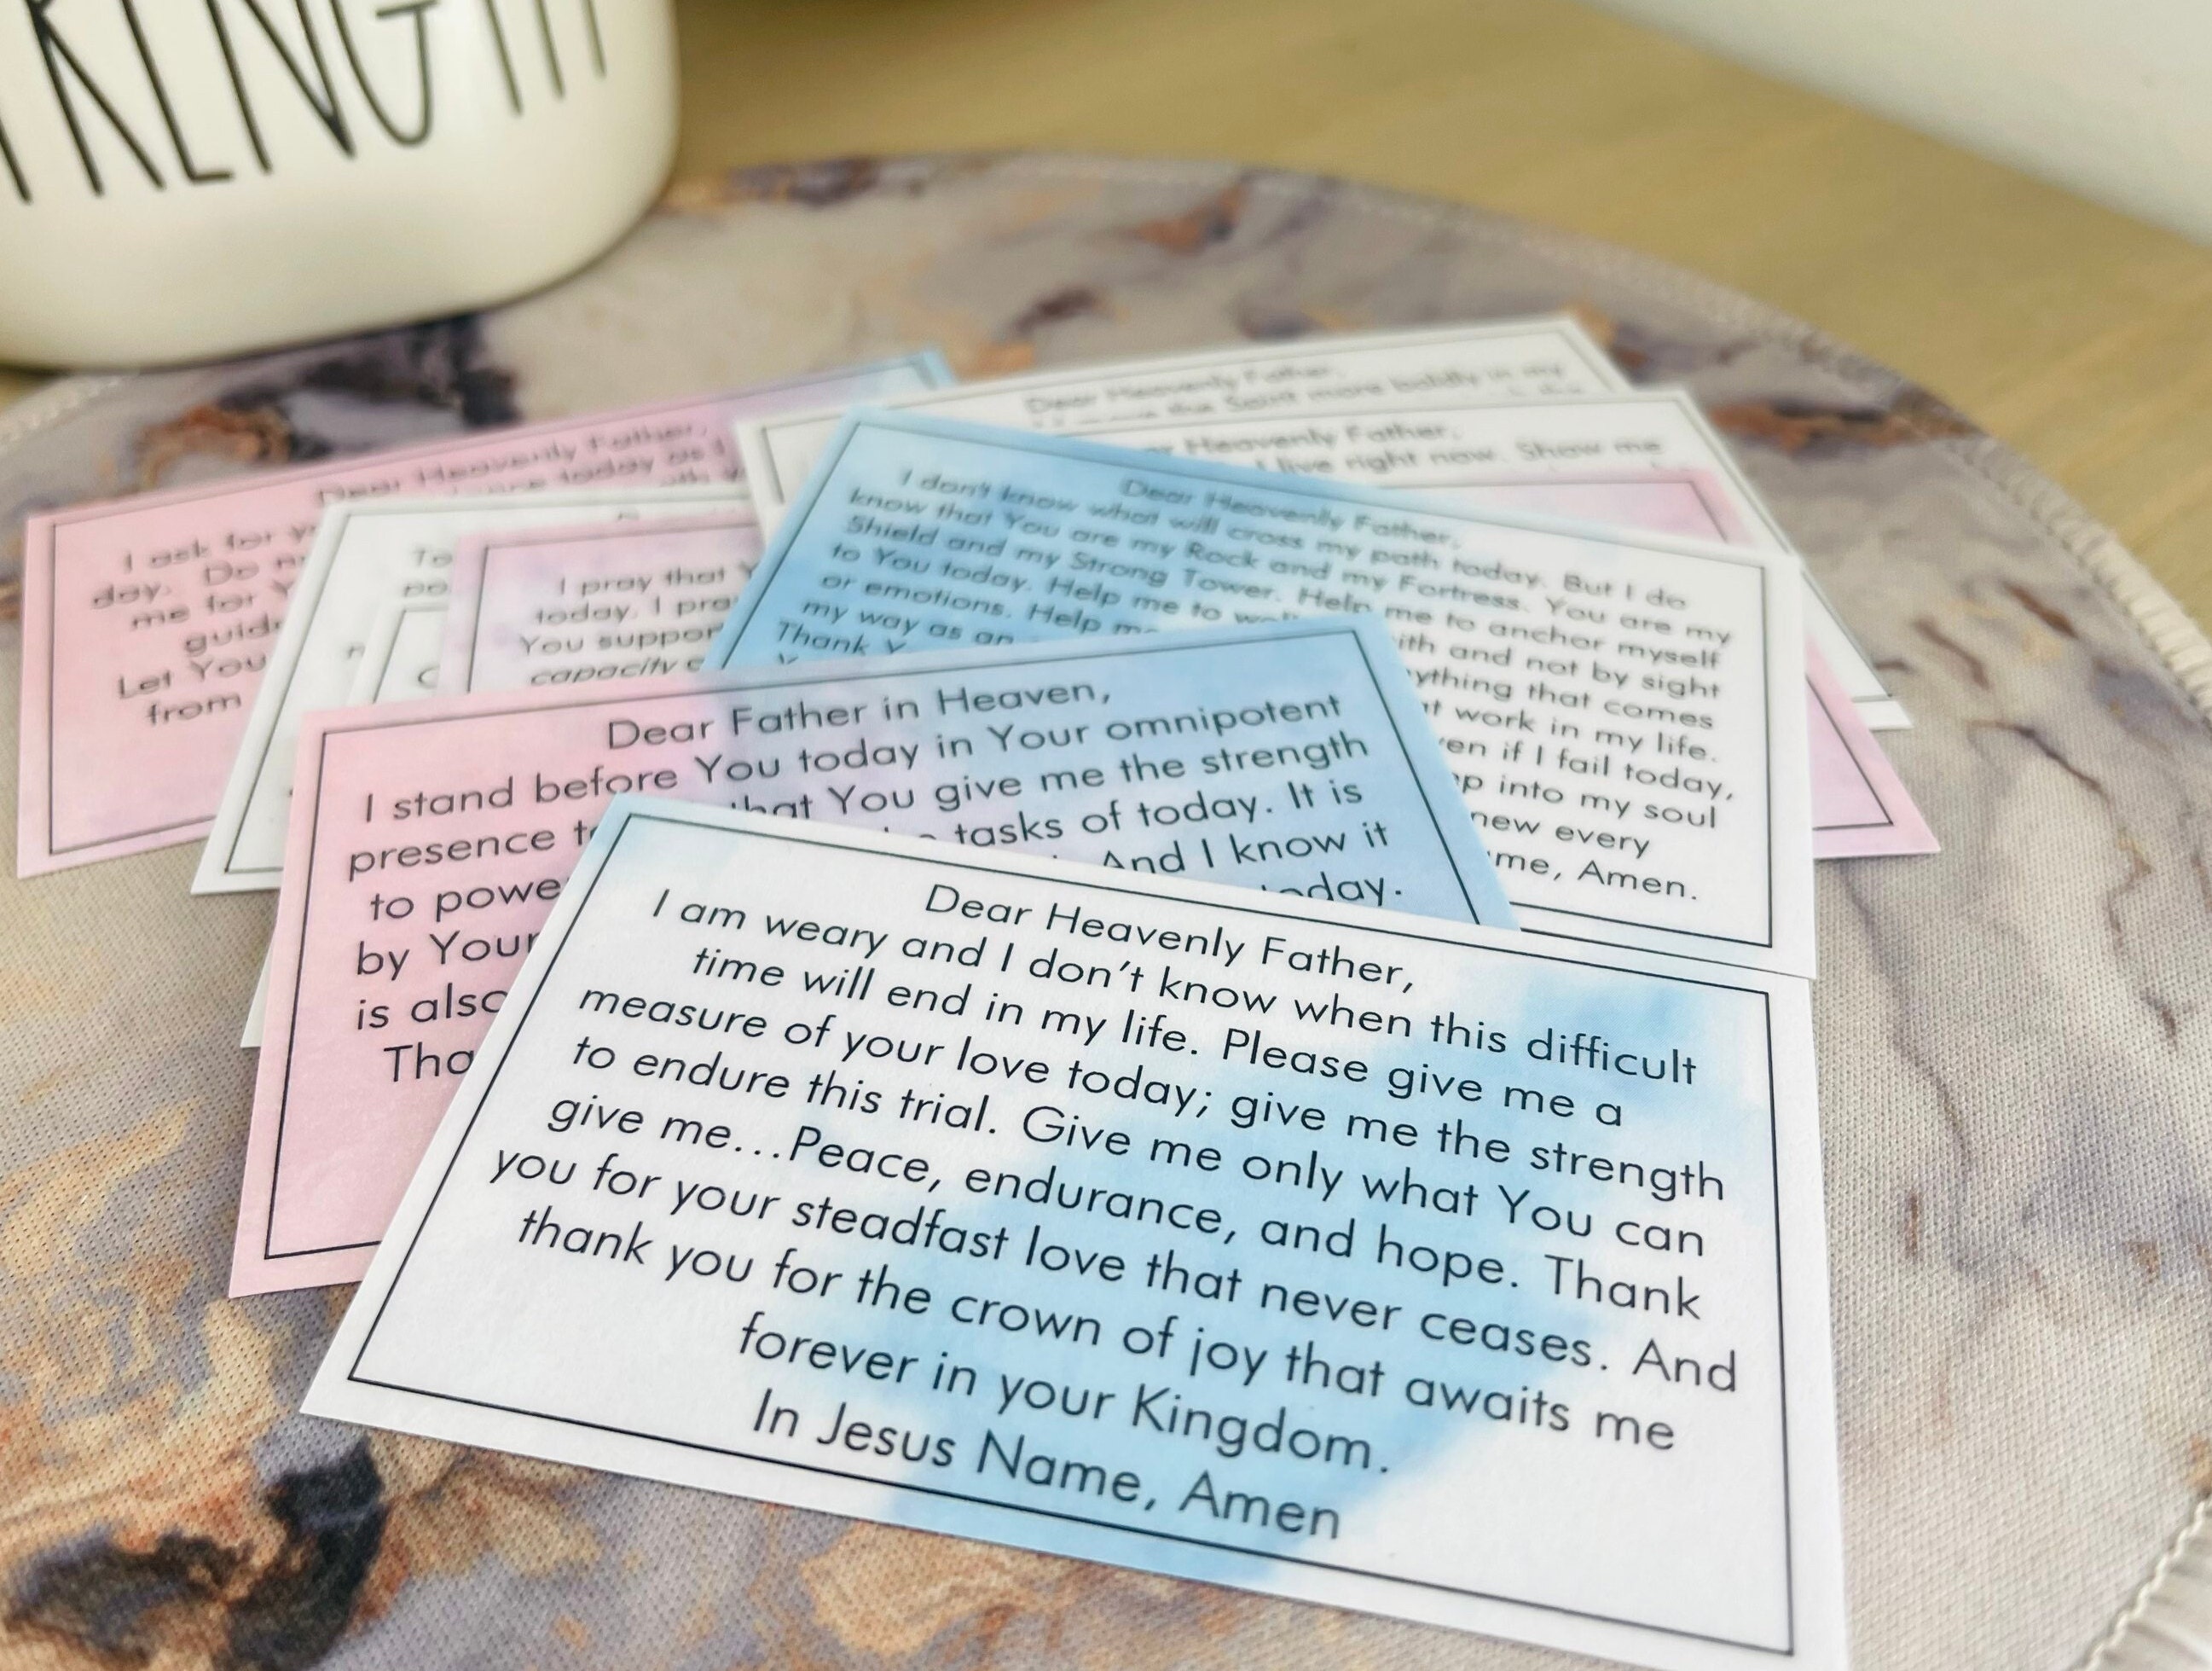 Dear Heavenly Father,
Dear Heavenly Father,
live right now. Show me
Dear Heavenly Father,
today as I
I ask for
day. Do
me for
guid
Let You
from
To
I pray that
today. I pra
You suppor
capacity
Dear Heavenly Father,
I don't know what will cross my path today. But I do
know that You are my Rock and my Fortress. You are my
Shield and my Strong Tower. Help me to anchor myself
to You today. Help me to ith and not by sight
or emotions. Help ything that comes
my way as an t work in my life.
Thank en if I fail today,
p into my soul
new every
me, Amen.
Dear Father in Heaven,
I stand before You today in Your omnipotent
presence that You give me the strength
to powe tasks of today. It is
by Your And I know it
is also today.
Tha
Dear Heavenly Father,
I am weary and I don't know when this difficult
time will end in my life. Please give me a
measure of your love today; give me the strength
to endure this trial. Give me only what You can
give me...Peace, endurance, and hope. Thank
you for your steadfast love that never ceases. And
thank you for the crown of joy that awaits me
forever in your Kingdom.
In Jesus Name, Amen
TRENGTH